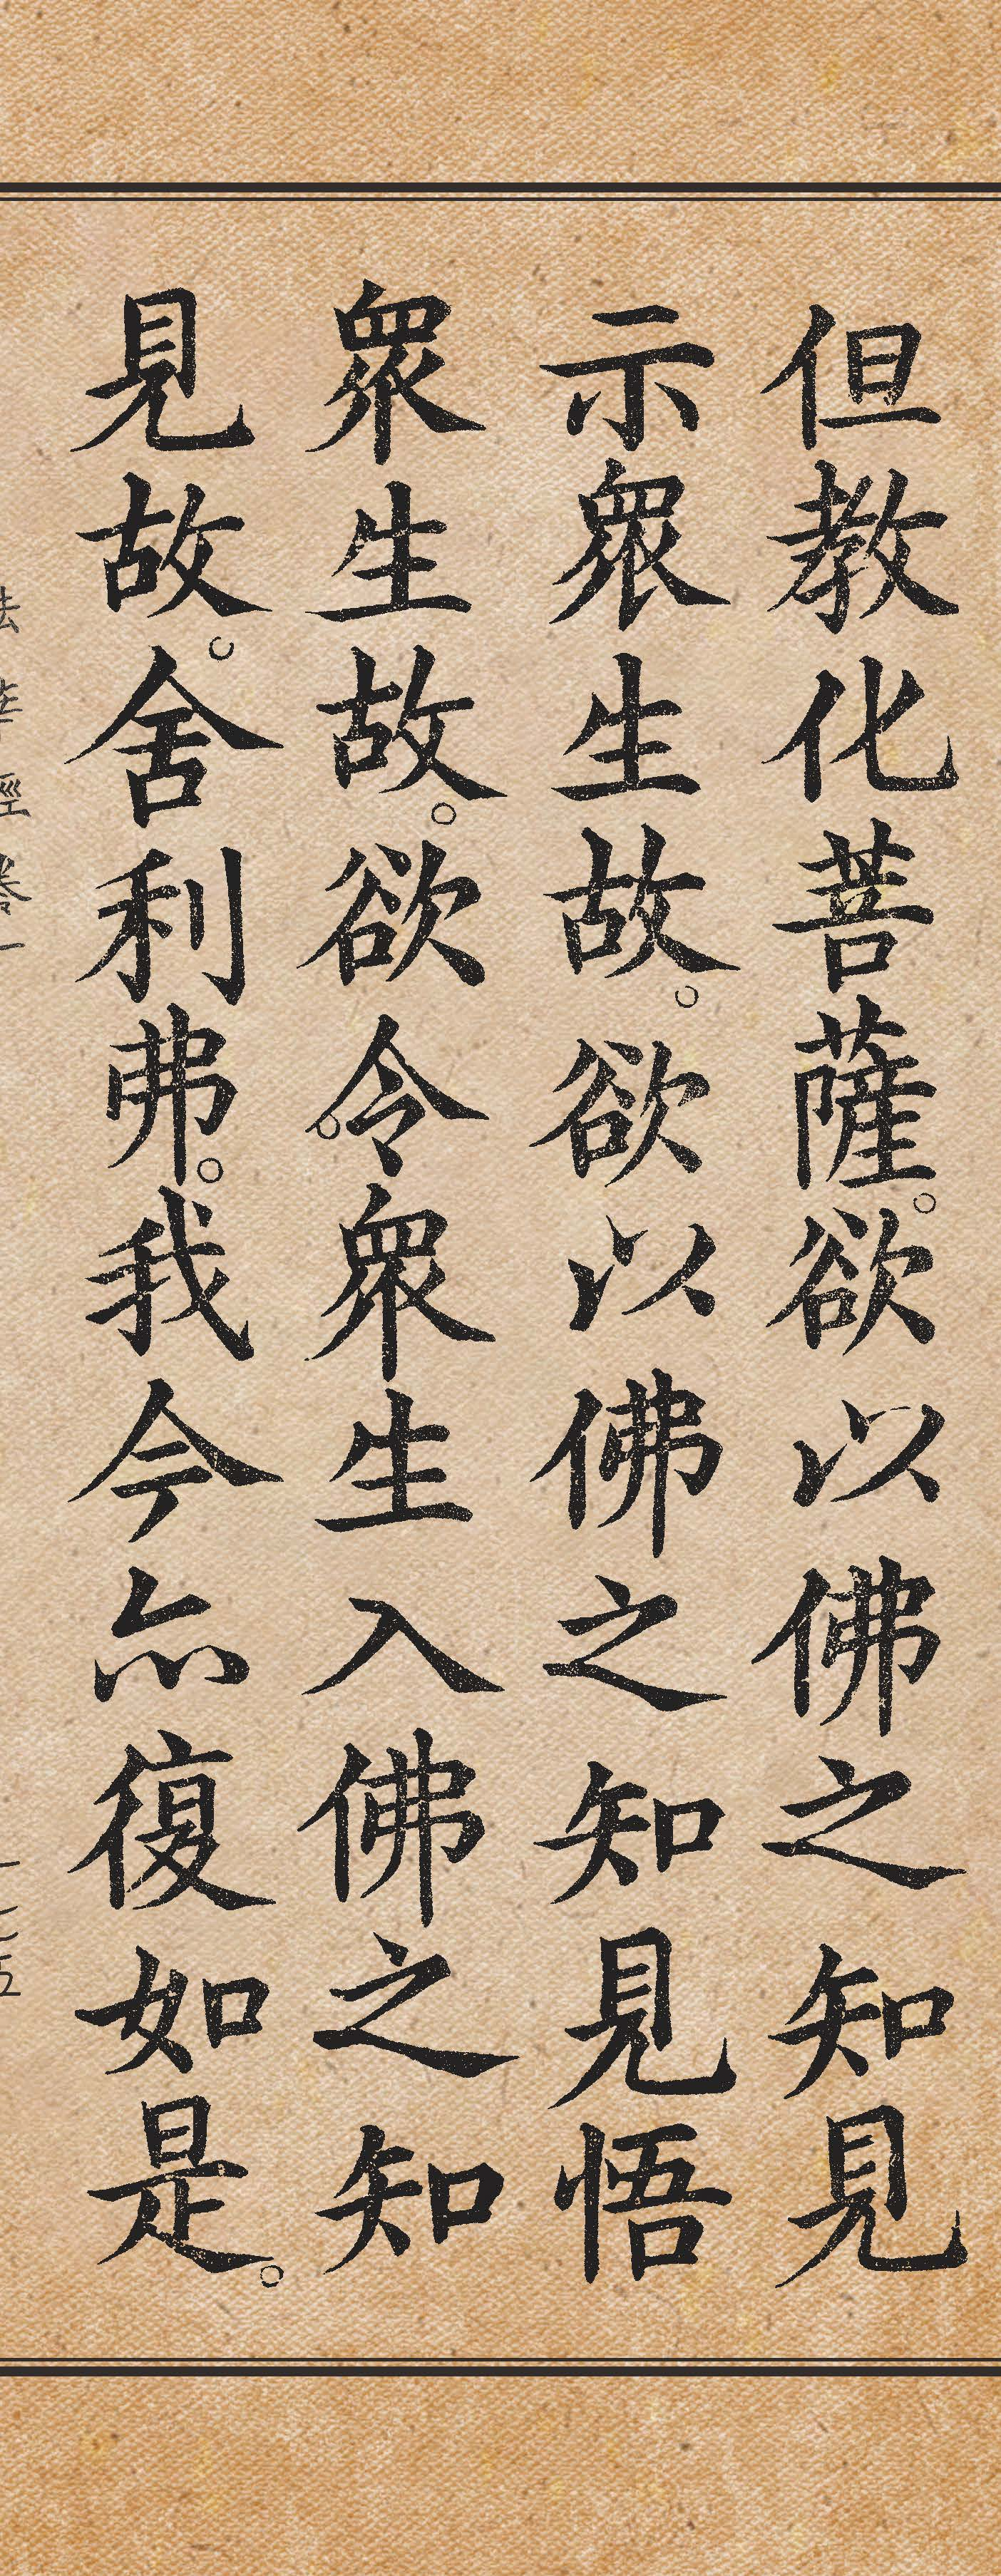 但教化菩薩。欲以佛之知見
示眾生故。欲以佛之知見悟
眾生故。欲令眾生入佛之知
見故。舍利弗。我今亦復如是。
法華經卷一